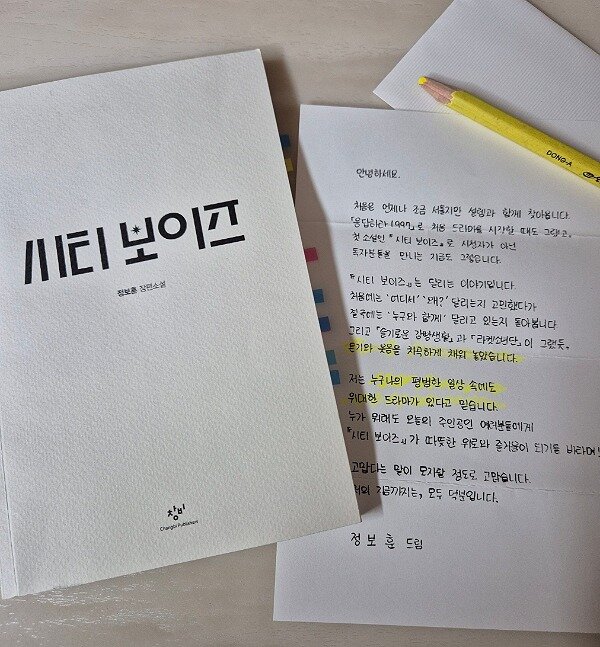 시티보이즈
정보훈 장편소설
창비
Changbi Publishers
DONG-A
안녕하세요.
처음은 언제나 조금 서툴지만 설렘과 함께 찾아옵니다.
『응답하라 1997』로 처음 드라마를 시작할 때도 그랬고,
첫 소설인 『시티 보이즈』로 시청자가 아닌
독자분들을 만나는 지금도 그렇습니다.
『시티 보이즈』는 달리는 이야기입니다.
처음에는 '어디서' '왜?' 달리는지 고민했다가
결국에는 '누구와 함께' 달리고 있는지 돌아봅니다.
그리고 『슬기로운 감빵생활』과 『라켓소년단』이 그랬듯,
온기와 웃음을 지극하게 채워 놓았습니다.
저는 누구나의 평범한 일상 속에도
위대한 드라마가 있다고 믿습니다.
누가 뭐래도 오늘의 주인공인 여러분들에게
『시티 보이즈』가 따뜻한 위로와 즐거움이 되기를 바라며
고맙다는 말이 모자랄 정도로 고맙습니다.
저의 지금까지는, 모두 덕분입니다.
정보훈 드림